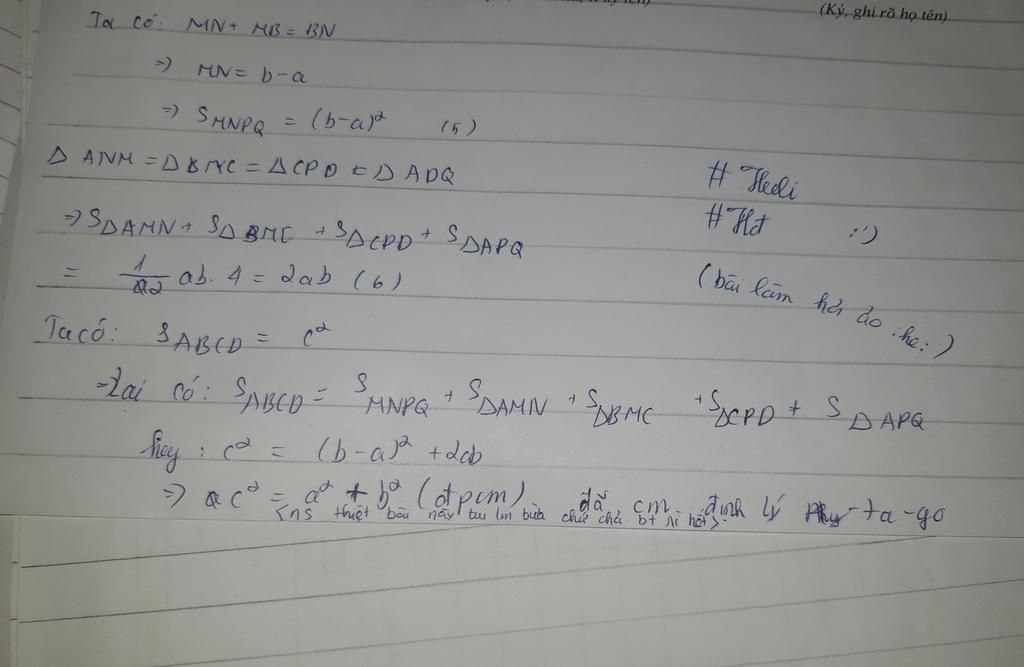 (Ký, ghi rõ họ tên)
Ta có: MN + MB = BN
=> MN = b-a
=> S MNPQ = (b-a)² (5)
Δ ANM = Δ BMC = Δ CPD = Δ ADQ
# Hedi
=> SΔAMN + SΔBMC + SΔCPD + SΔAPQ
# Hd :')
= 1/2 ab. 4 = 2ab (6)
(bài làm hơi ảo :he: )
Ta có: S ABCD = c²
=> Lại có: S ABCD = S MNPQ + SΔAMN + SΔBMC + SΔCPD + SΔAPQ
hay : c² = (b-a)² + 2ab
=> c² = a² + b² (đpcm) đã cm định lý Py-ta-go
<ns thiệt bài này tui lm bừa chứ chả bt rì hết>